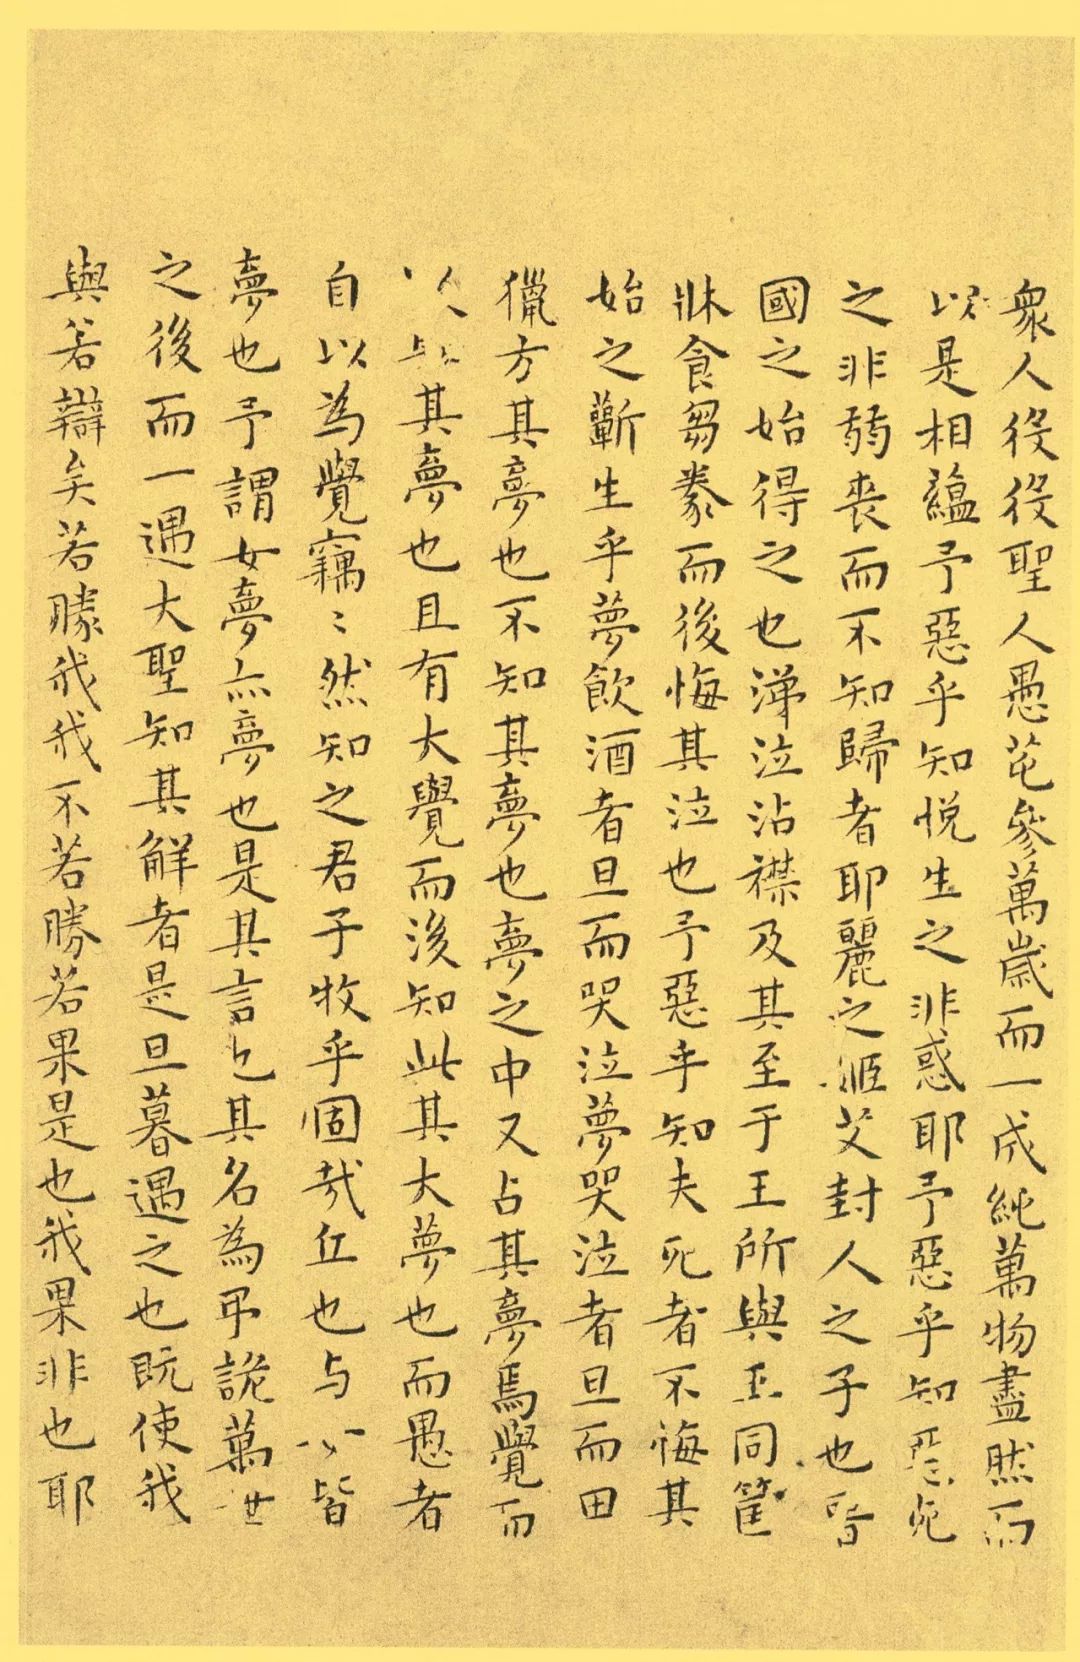 衆人役役聖人愚芚參萬歲而一成純萬物盡然而
以是相蘊予惡乎知悅生之非惑耶予惡乎知惡死
之非弱喪而不知歸者耶麗之姬艾封人之子也晉
國之始得之也涕泣沾襟及其至于王所與王同筐
牀食芻豢而後悔其泣也予惡乎知夫死者不悔其
始之蘄生乎夢飲酒者旦而哭泣夢哭泣者旦而田
獵方其夢也不知其夢也夢之中又占其夢焉覺而
以其夢也且有大覺而後知此其大夢也而愚者
自以為覺竊〻然知之君子牧乎固哉丘也与皆
夢也予謂女夢亦夢也是其言也其名為弔詭萬世
之後而一遇大聖知其解者是旦暮遇之也既使我
與若辯矣若勝我我不若勝若果是也我果非也耶